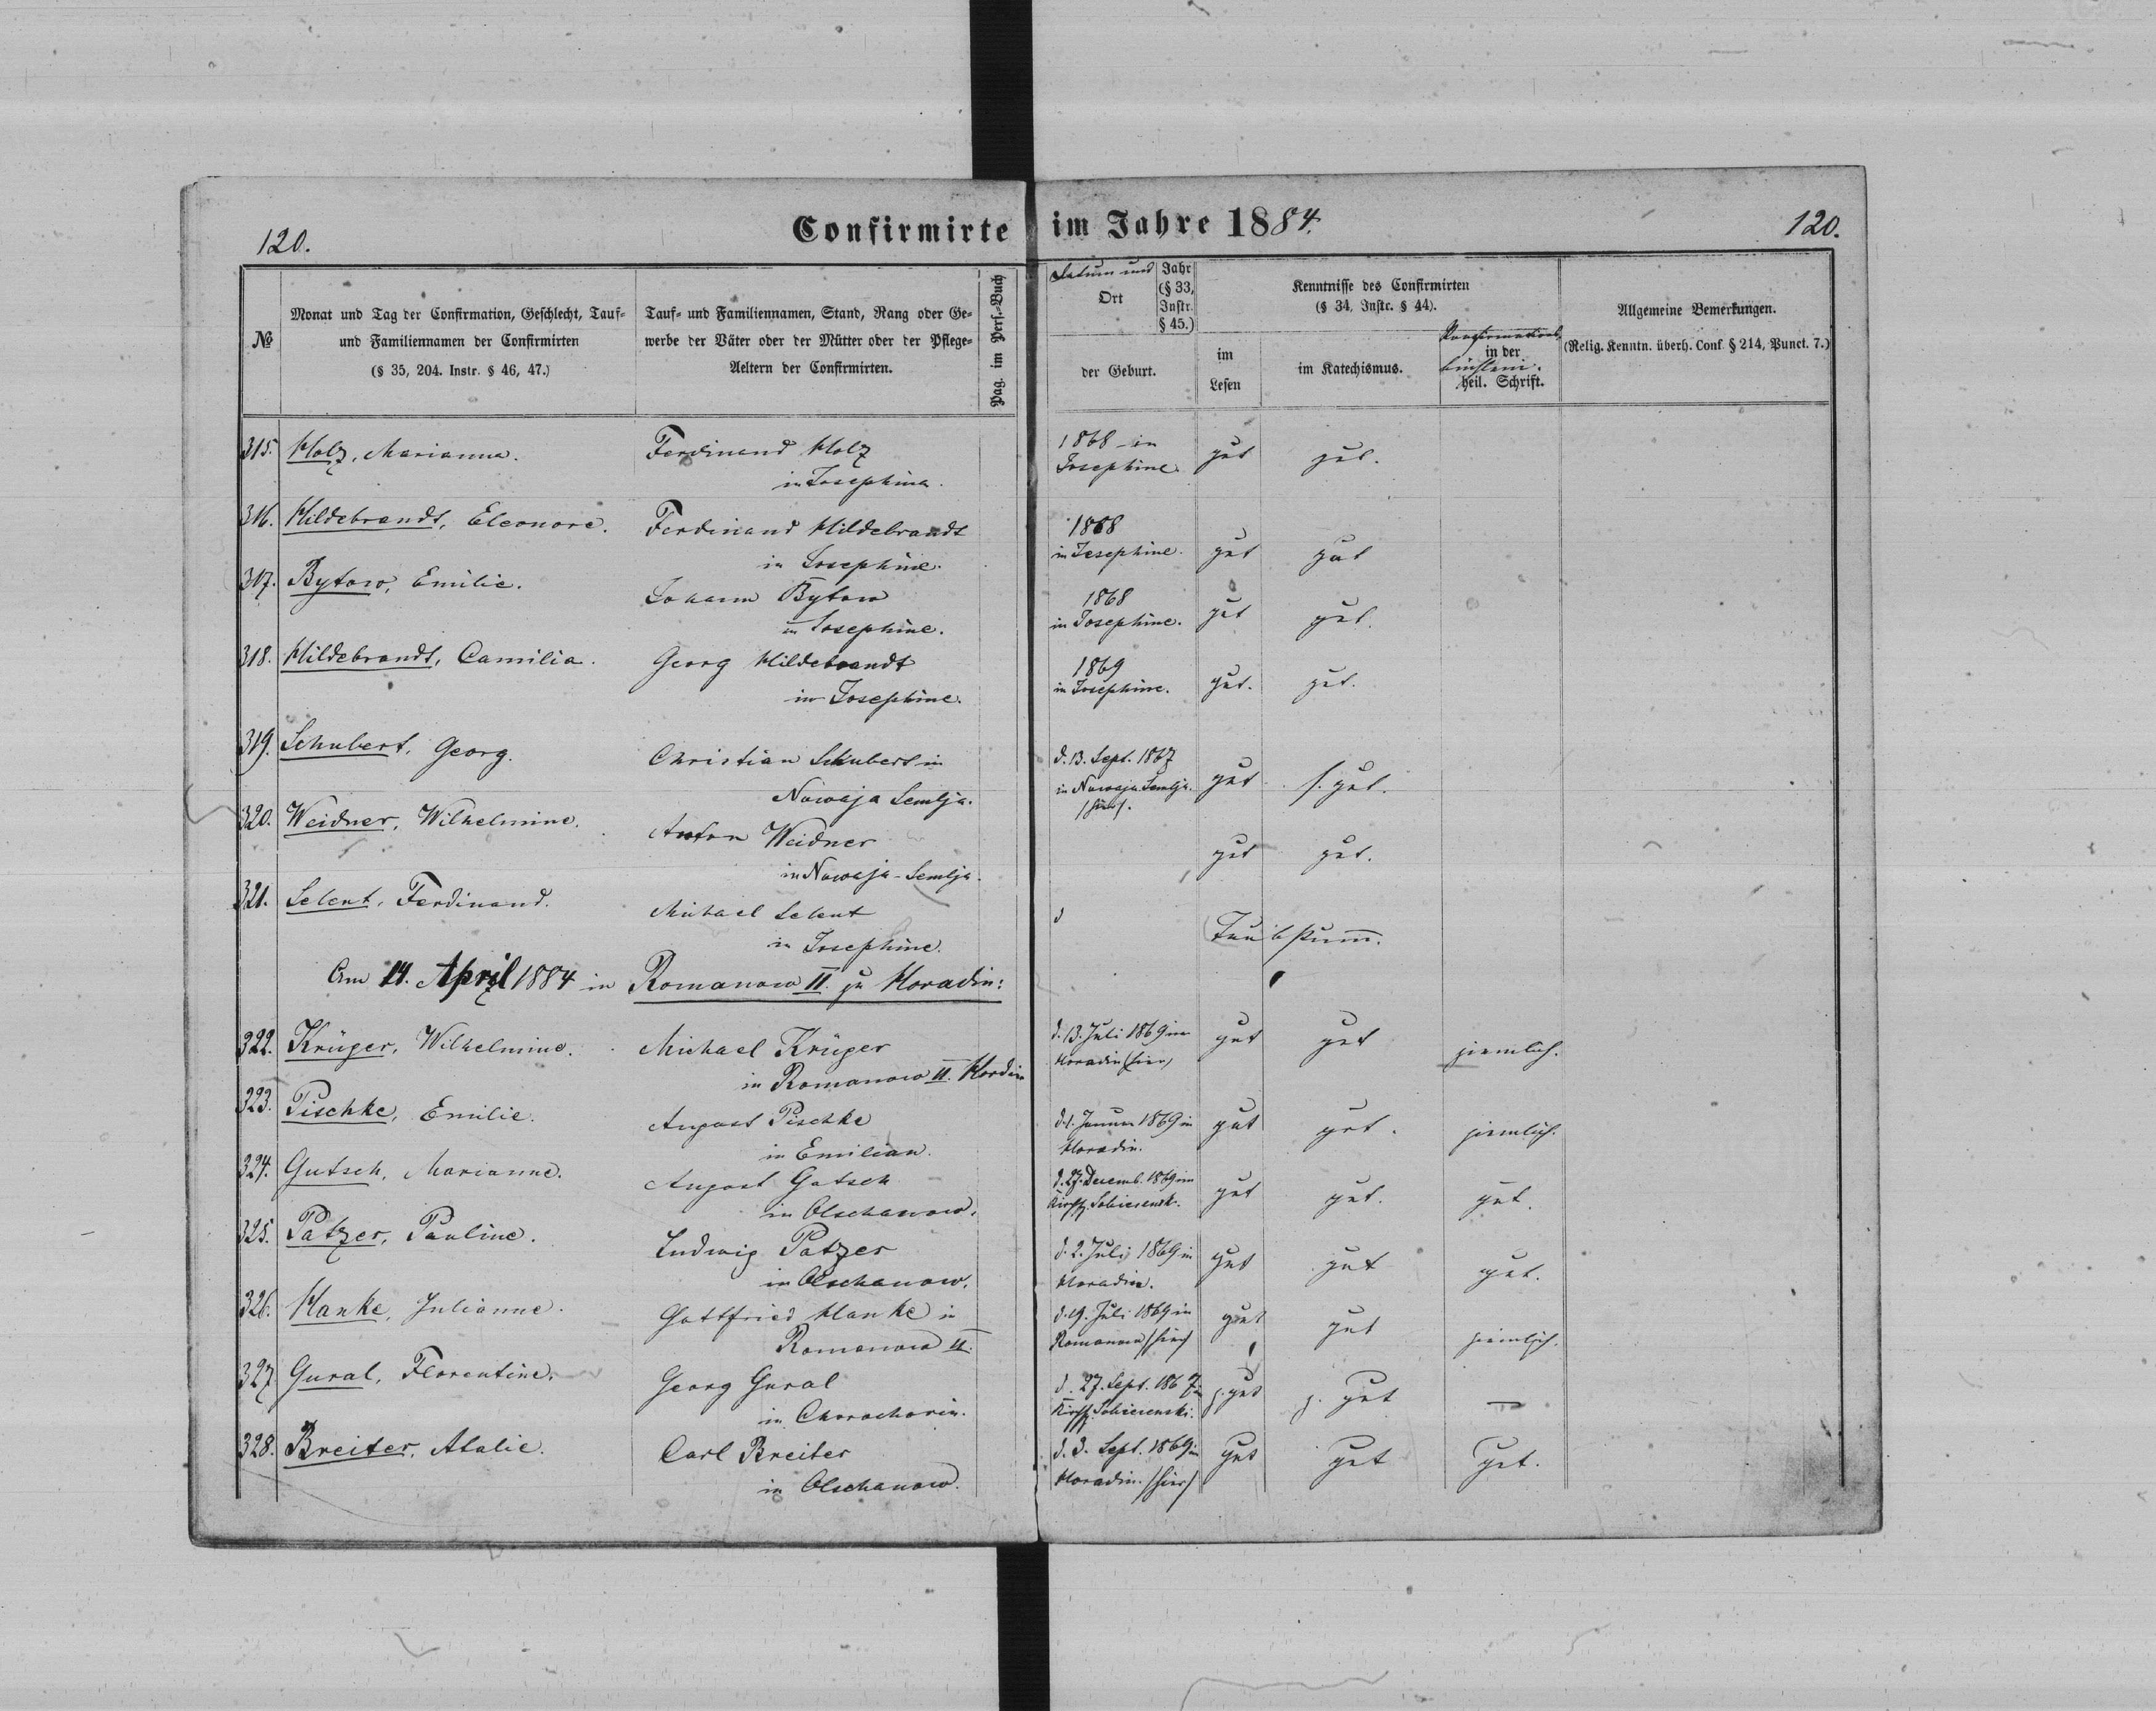 120.
Confirmirte im Jahre 1884.
120.
№
Monat und Tag der Confirmation, Geschlecht, Tauf-
und Familiennamen der Confirmirten
(§ 35, 204. Instr. § 46, 47.)
Tauf- und Familiennamen, Stand, Rang oder Ge-
werbe der Väter oder der Mütter oder der Pflege-
Aeltern der Confirmirten.
Pag. im Pers.-Buch
Datum und
Ort
der Geburt.
Jahr
(§ 33,
Instr.
§ 45.)
Kenntnisse des Confirmirten
(§ 34, Instr. § 44).
im
Lesen
im Katechismus.
in der
heil. Schrift.
Allgemeine Bemerkungen.
(Relig. Kenntn. überh. Conf. § 214, Punct. 7.)
315. Holz, Marianna. Ferdinand Holz 1868 in gut gut.
in Josephina. Josephine.
316. Hildebrandt, Eleonore. Ferdinand Hildebrandt 1868 gut gut
in Josephine. in Josephine.
317. Bytow, Emilie. Johann Bytow 1868 gut gut.
in Josephine. in Josephine.
318. Hildebrandt, Camilia. Georg Hildebrandt 1869 gut. gut.
in Josephine. in Josephine.
319. Schubert, Georg. Christian Schubert in d. 13. Sept. 1867 gut s. gut.
Nowaja Semlja. in Nowaja Semlja.
/hier/.
320. Weidner, Wilhelmine. Anton Weidner gut gut.
in Nowaja-Semlja.
321. Selent, Ferdinand. Michael Selent Taubstumm.
in Josephine.
Am 14. April 1884 in Romanow II. zu Horadin:
322. Krüger, Wilhelmine. Michael Krüger d. 13. Juli 1869 in gut gut ziemlich.
in Romanow II. Hordin Horadin (hier)
323. Pischke, Emilie. August Pischke d. 1. Januar 1869 in gut gut. ziemlich.
in Emilian. Horadin.
324. Gutsch, Marianne. August Gutsch d. 27. Decemb. 1869 im gut gut. gut.
in Olschanow. Kirchsp.
325. Patzer, Pauline. Ludwig Patzer d. 2. Juli 1869 in gut gut gut.
in Olschanow. Horadin.
326. Hanke, Julianne. Gottfried Hanke in d. 19. Juli 1869 in gut gut ziemlich.
Romanow II. Romanow /hier/
327. Gural, Florentine. Georg Gural d. 27. Sept. 1867 z. gut z. gut —
in Chorochorin. Kirchsp.
328. Breiter, Atalie. Carl Breiter d. 3. Sept. 1869 in gut gut gut.
in Olschanow. Horadin. /hier/